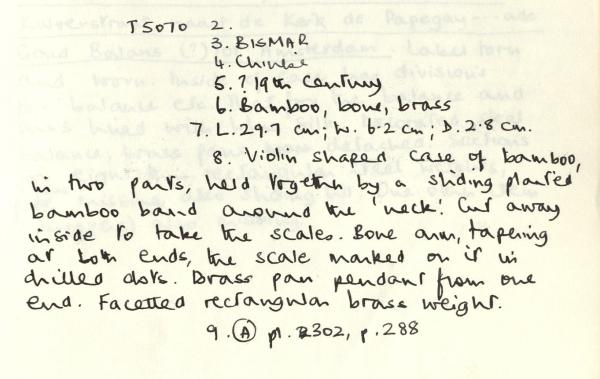 T5070 2.
3. BISMAR
4. Chinese
5. ? 19th Century
6. Bamboo, bone, brass
7. L. 29.7 cm; W. 6.2 cm; D. 2.8 cm.
8. Violin shaped case of bamboo,
in two parts, held together by a sliding plaited
bamboo band around the 'neck'. Cut away
inside to take the scales. Bone arm, tapering
at both ends, the scale marked on it in
drilled dots. Brass pan pendant from one
end. Facetted rectangular brass weight.
9. (A) pl. 302, p. 288